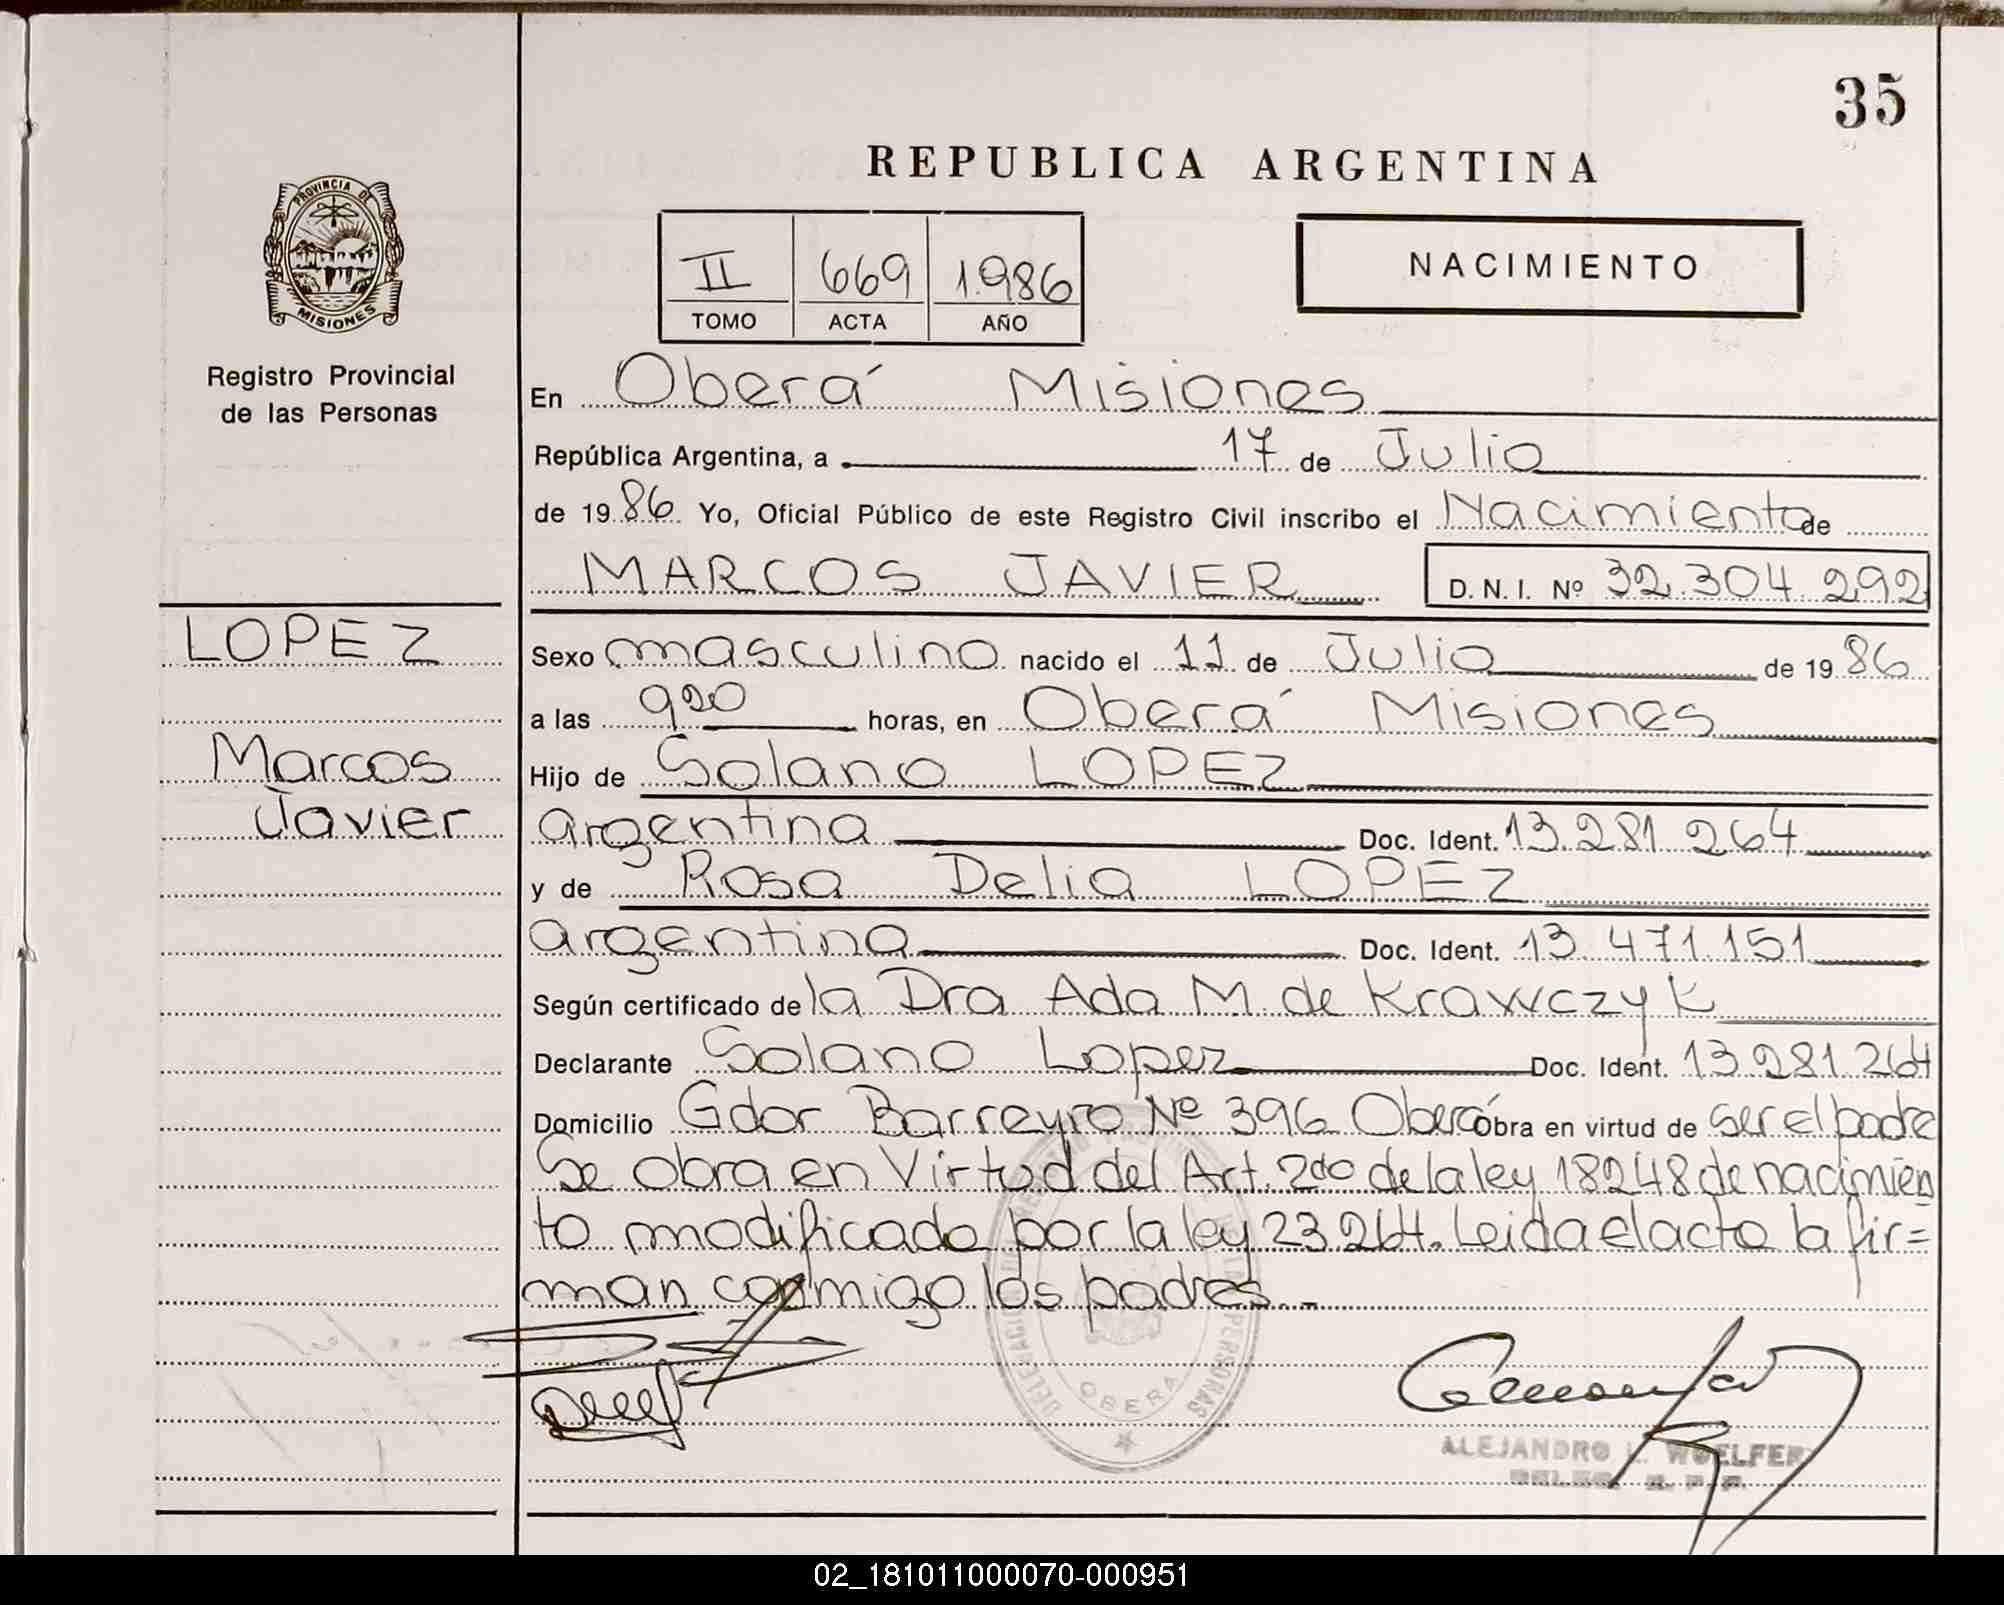 35
REPUBLICA ARGENTINA
PROVINCIA DE
MISIONES
II 669 1.986
TOMO ACTA AÑO
NACIMIENTO
Registro Provincial
de las Personas
En Oberá Misiones
República Argentina, a 17 de Julio
de 19 86 Yo, Oficial Público de este Registro Civil inscribo el Nacimiento de
MARCOS JAVIER D. N. I. Nº 32.304.292
LOPEZ
Marcos
Javier
Sexo masculino nacido el 11 de Julio de 19 86
a las 920 horas, en Oberá Misiones
Hijo de Solano LOPEZ
argentina Doc. Ident. 13.281.264
y de Rosa Delia LOPEZ
argentina Doc. Ident. 13.471.151
Según certificado de la Dra Ada M. de Krawczyk
Declarante Solano Lopez Doc. Ident. 13.281.264
Domicilio Gdor Barreyro Nº 396 Oberá Obra en virtud de ser el padre
Se obra en Virtud del Art. 2do de la ley 18248 de nacimien
to modificado por la ley 23.264. Leida el acta la fir=
man conmigo los padres.-
OBERA
ALEJANDRO L. WOELFER
02_181011000070-000951